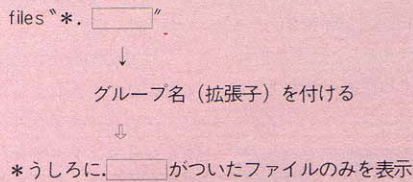 files "*. "
↓
グループ名（拡張子）を付ける
⇩
*うしろに. がついたファイルのみを表示